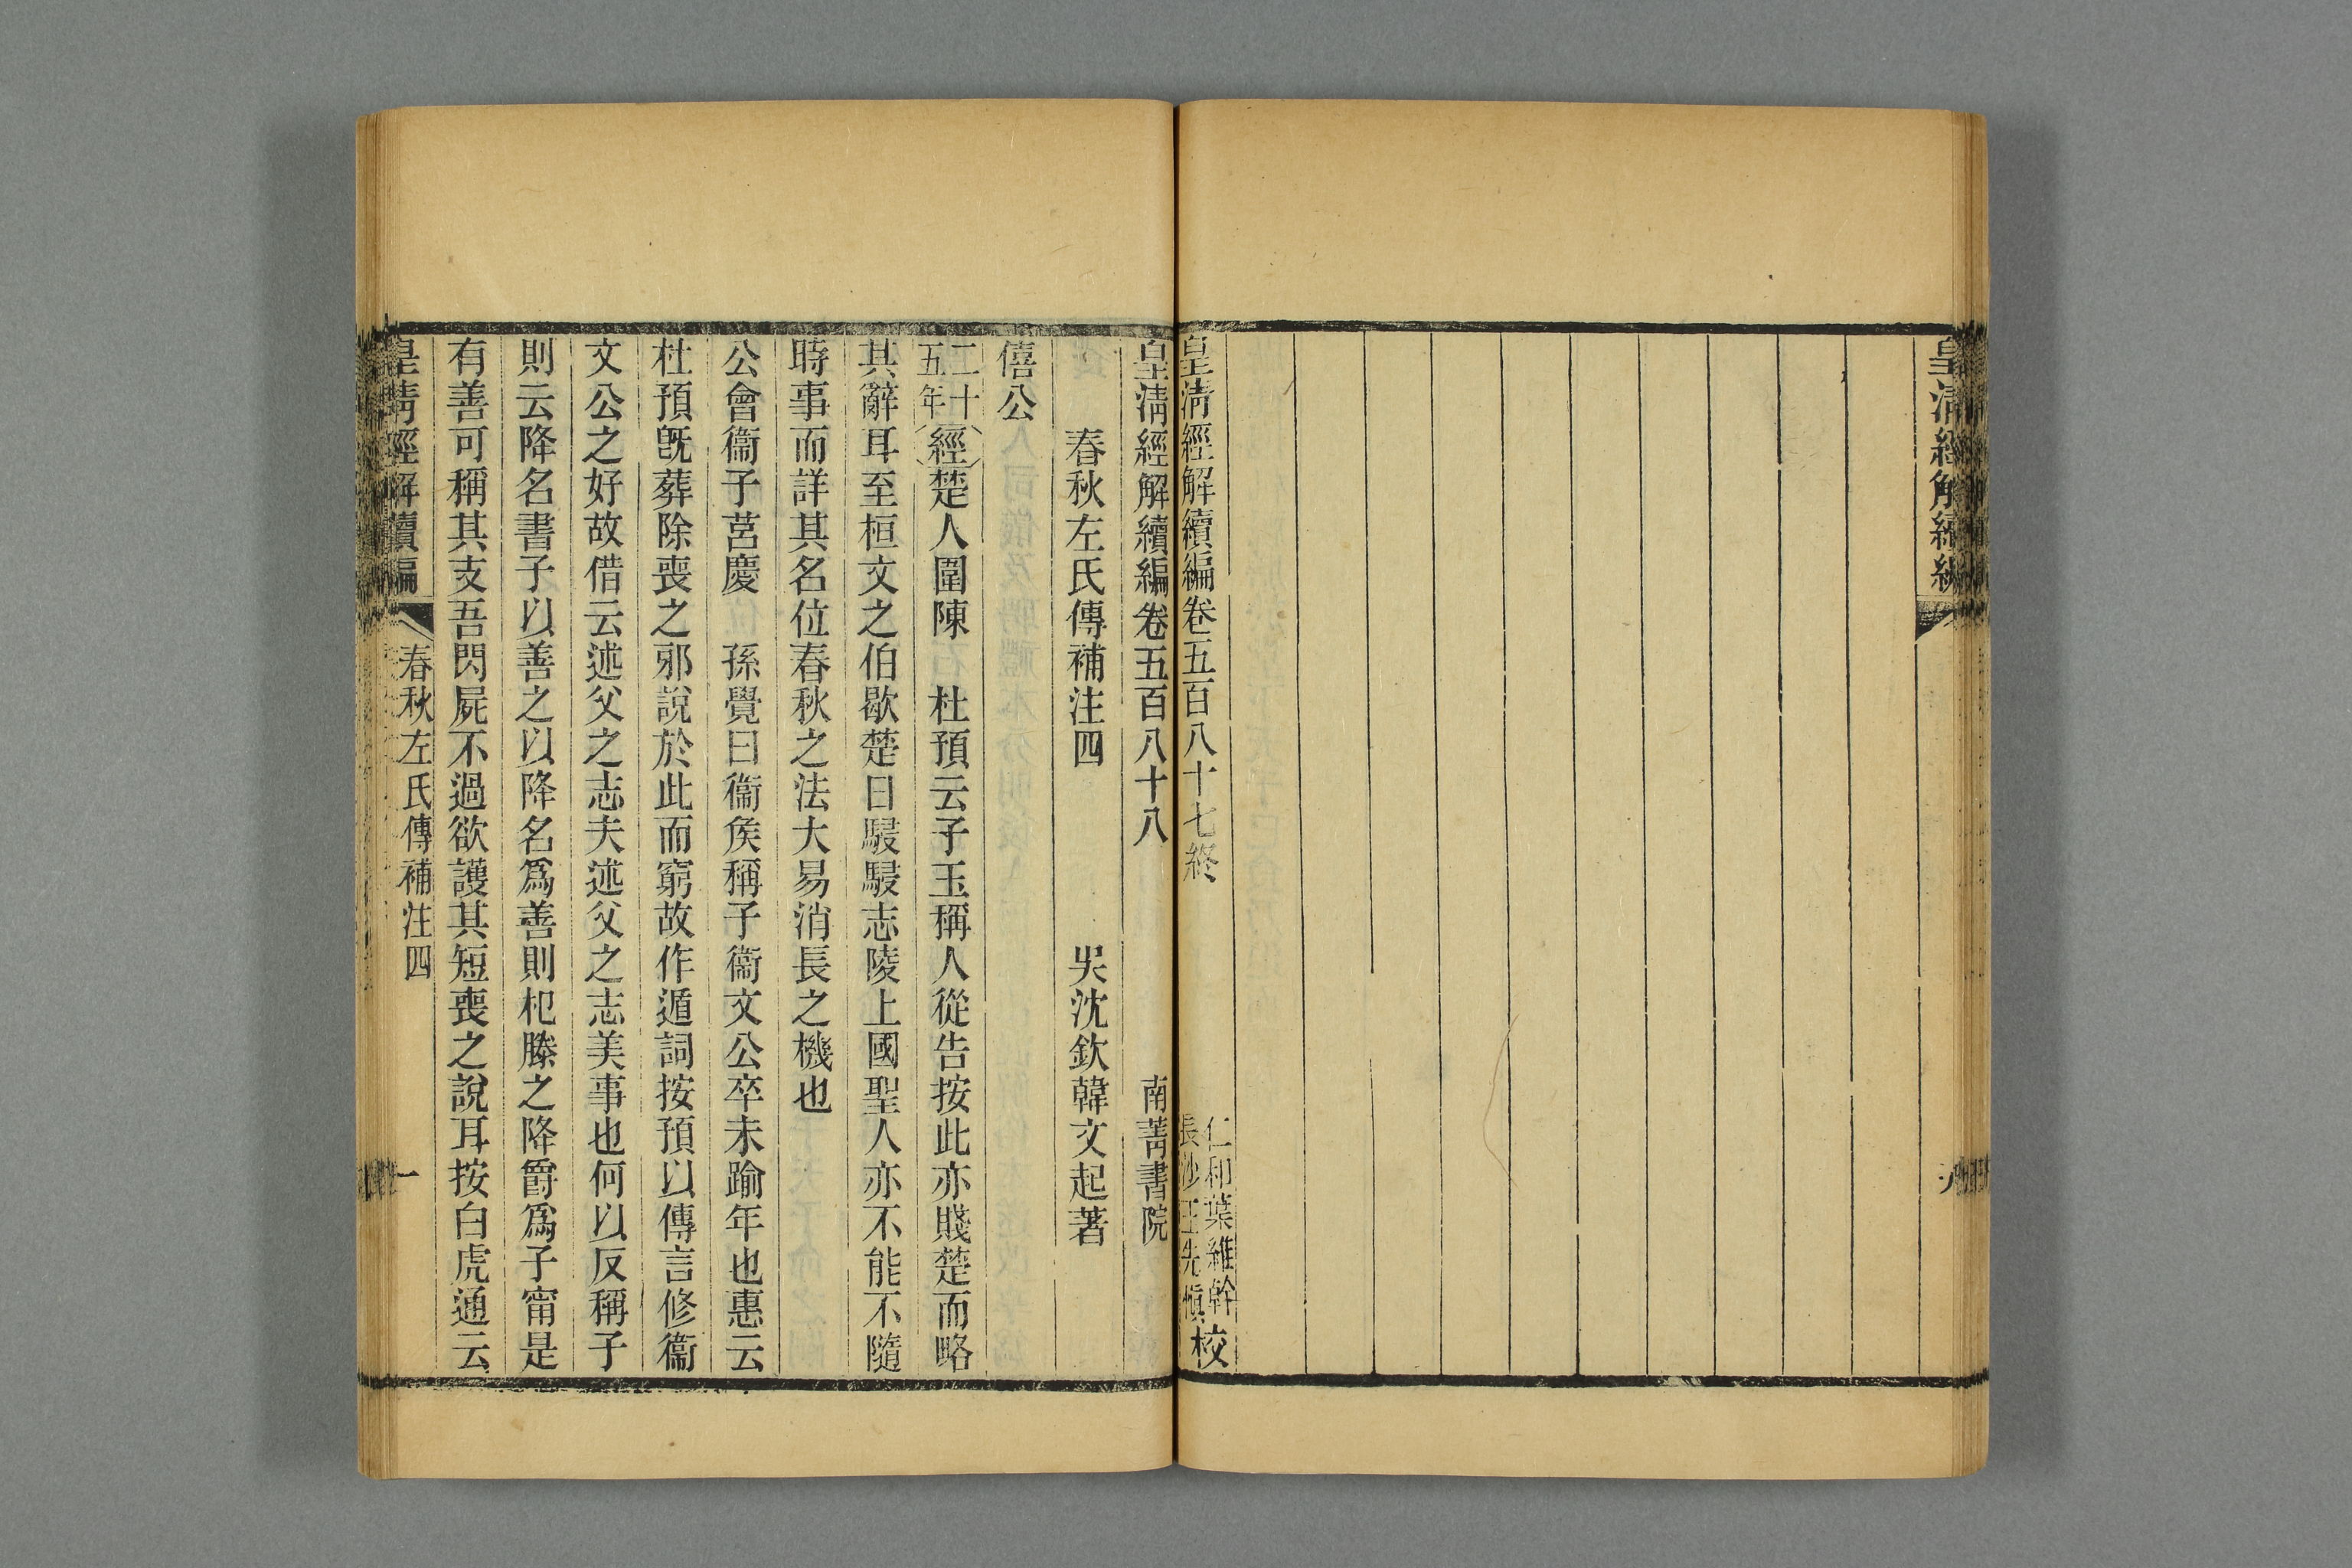 皇清經解續編
皇清經解續編卷五百八十七終
仁和葉維幹
長沙王先慎
校
皇清經解續編卷五百八十八
南菁書院
春秋左氏傳補注四
吳沈欽韓文起著
僖公
二十五年經楚人圍陳 杜預云子玉稱人從告按此亦賤楚而略
其辭耳至桓文之伯歇楚日駸駸志陵上國聖人亦不能不隨
時事而詳其名位春秋之法大易消長之機也
公會衞子莒慶 孫覺曰衞矦稱子衞文公卒未踰年也惠云
杜預旣葬除喪之邪說於此而窮故作遁詞按預以傳言修衞
文公之好故借云述父之志夫述父之志美事也何以反稱子
則云降名書子以善之以降名爲善則杞滕之降爵爲子甯是
有善可稱其支吾閃屍不過欲護其短喪之說耳按白虎通云
皇清經解續編
春秋左氏傳補注四
一